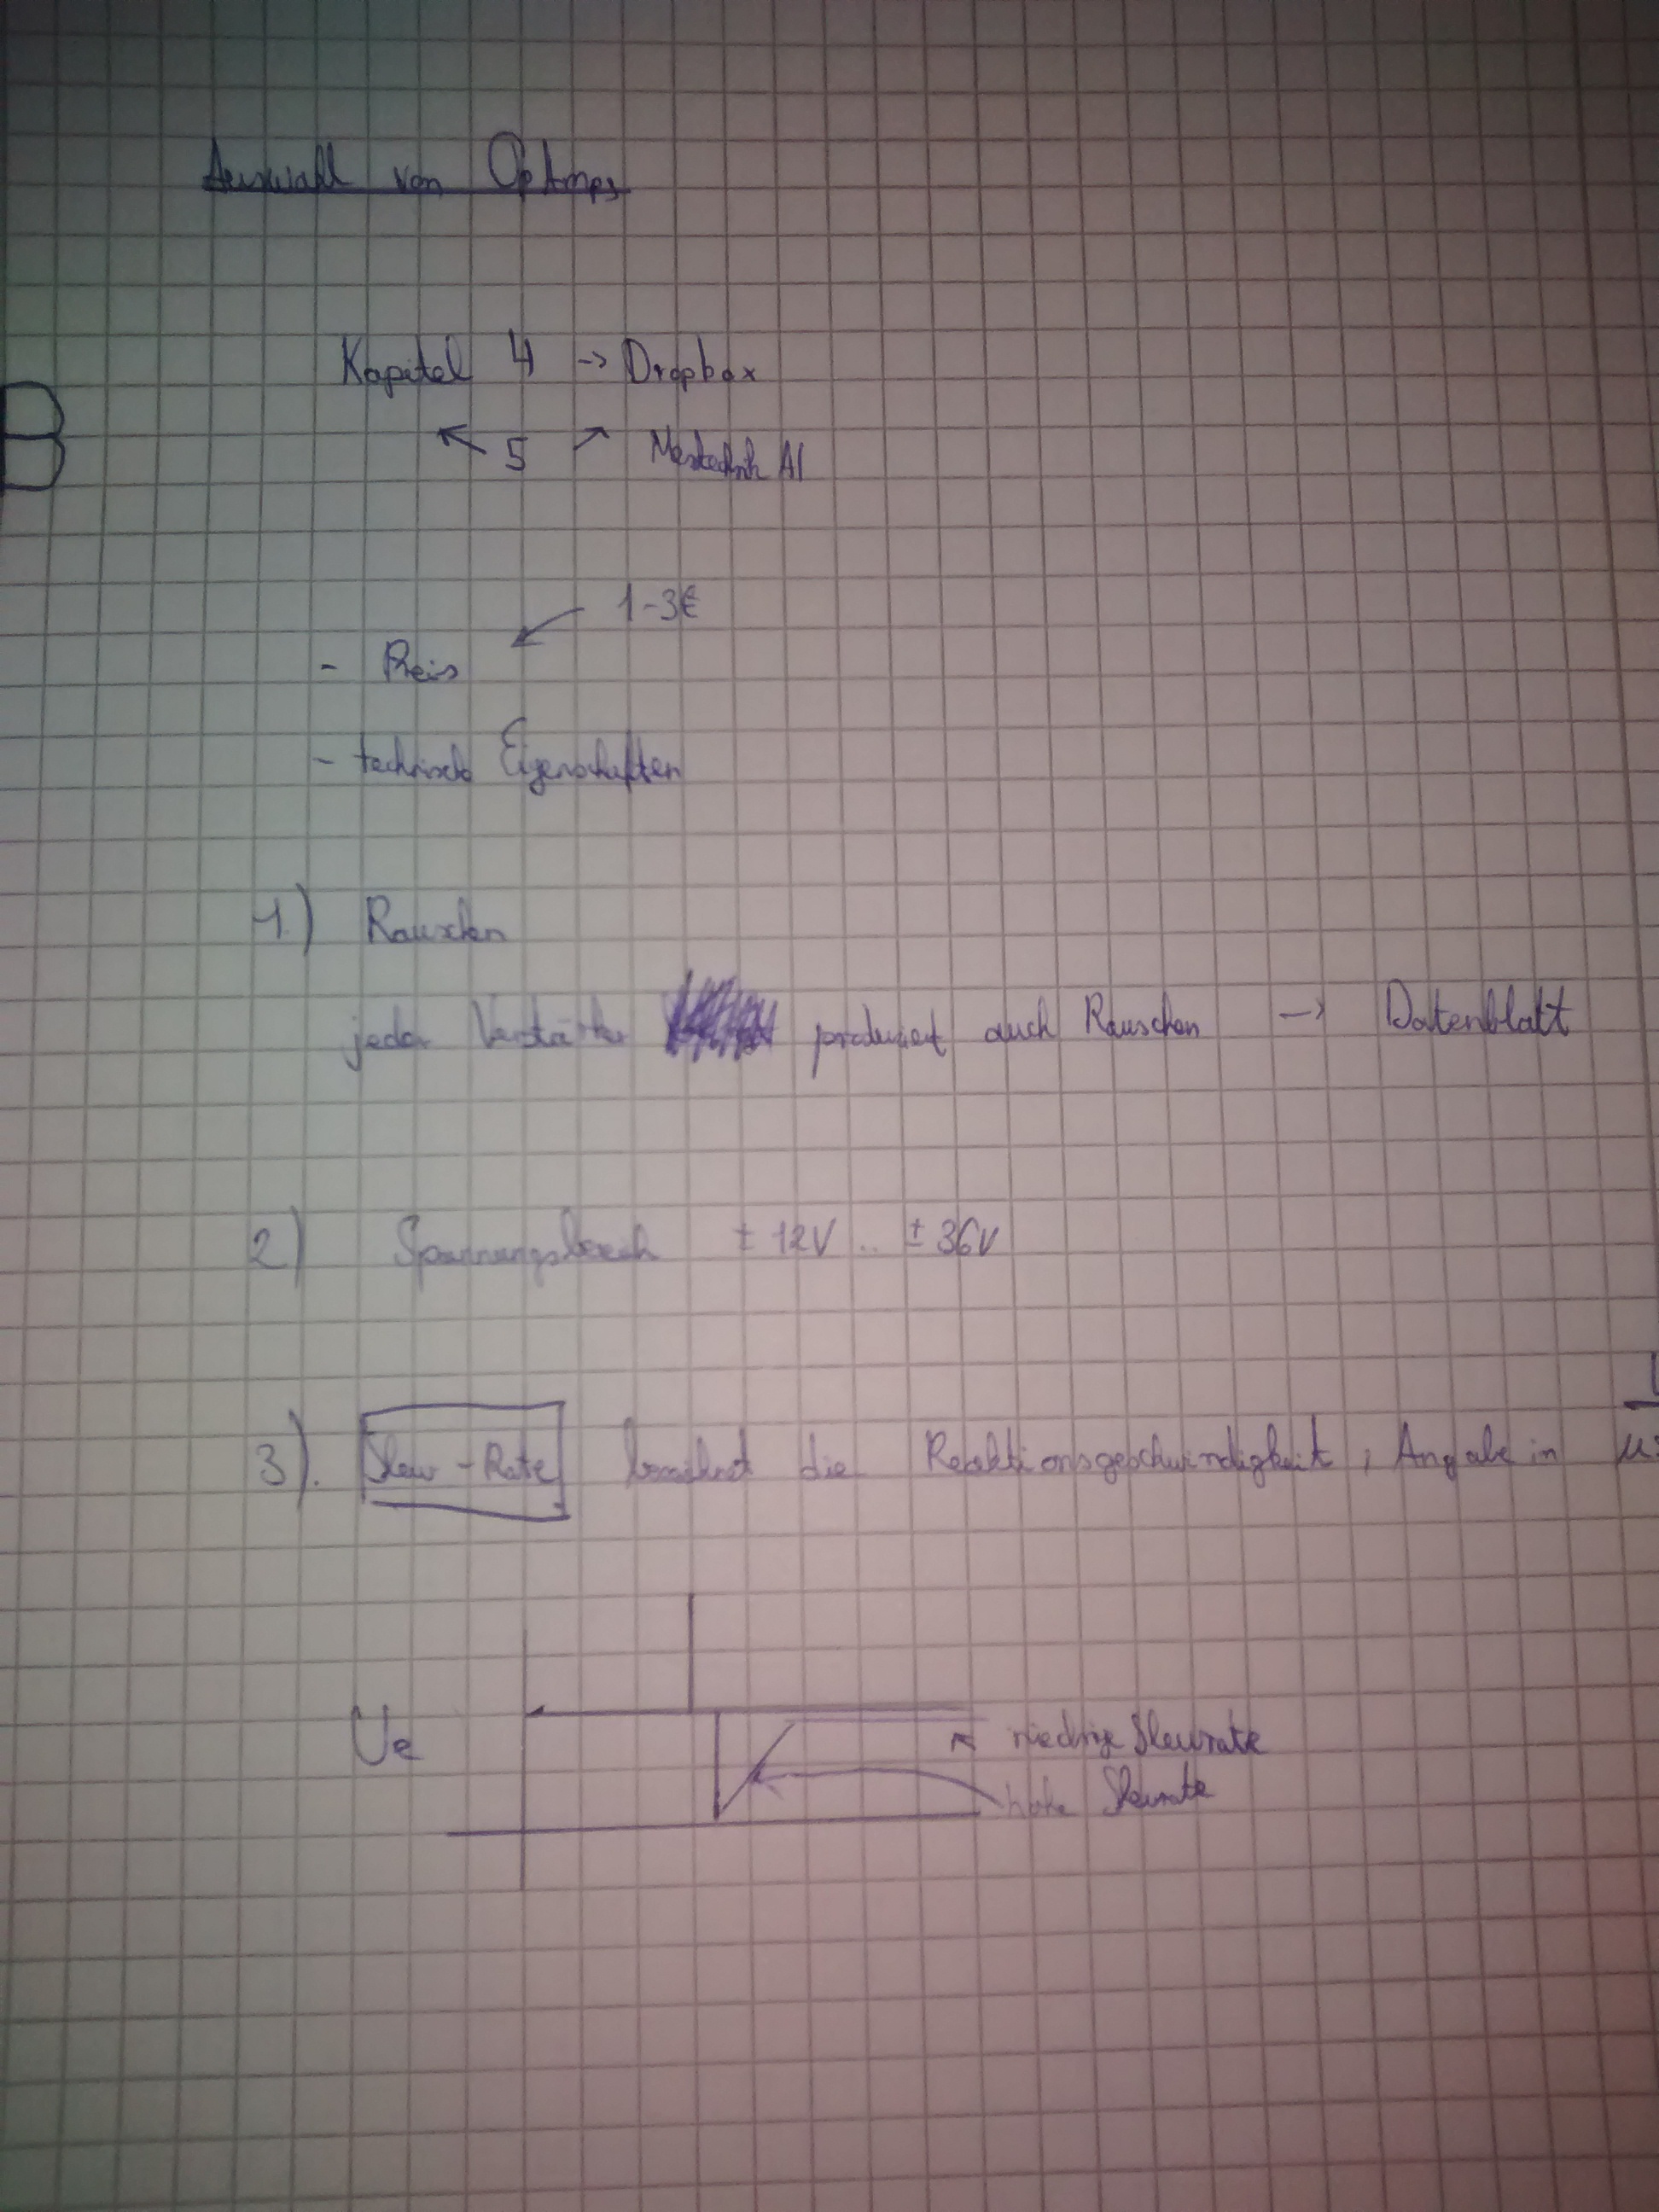 Auswahl von OpAmps
Kapitel 4 -> Dropbox
B
5 Messtechnik A1
1-3€
- Preis
- technische Eigenschaften
1.) Rauschen
jeder Verstärker produziert auch Rauschen -> Datenblatt
2) Spannungsbereich ± 12V .. ± 36V
3). Slew-Rate bezeichnet die Reaktionsgeschwindigkeit, Angabe in
Ue
niedrige Slewrate
hohe Slewrate